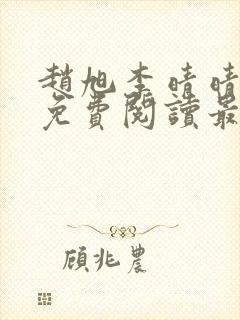 趙旭李晴晴
免費閱讀最
顧兆農